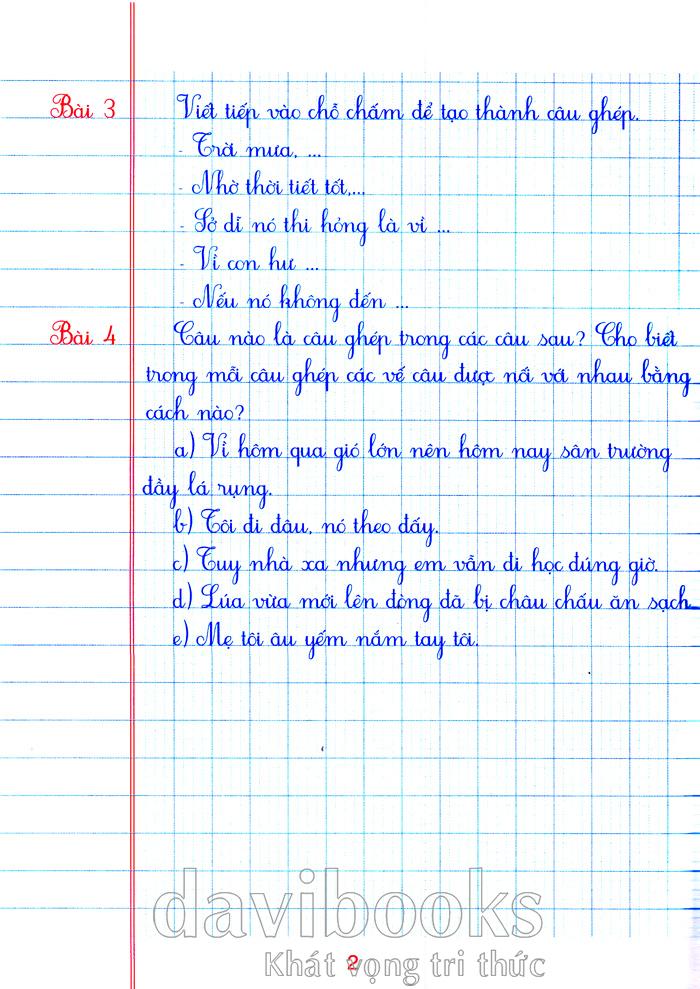 Bài 3 Viết tiếp vào chỗ chấm để tạo thành câu ghép.
- Trời mưa, ...
- Nhờ thời tiết tốt,...
- Sở dĩ nó thi hỏng là vì ...
- Vì con hư ...
- Nếu nó không đến ...
Bài 4 Câu nào là câu ghép trong các câu sau? Cho biết
trong mỗi câu ghép các vế câu được nối với nhau bằng
cách nào?
a) Vì hôm qua gió lớn nên hôm nay sân trường
đầy lá rụng.
b) Tôi đi đâu, nó theo đấy.
c) Tuy nhà xa nhưng em vẫn đi học đúng giờ.
d) Lúa vừa mới lên đòng đã bị châu chấu ăn sạch.
e) Mẹ tôi âu yếm nắm tay tôi.
davibooks
Khát vọng tri thức
2